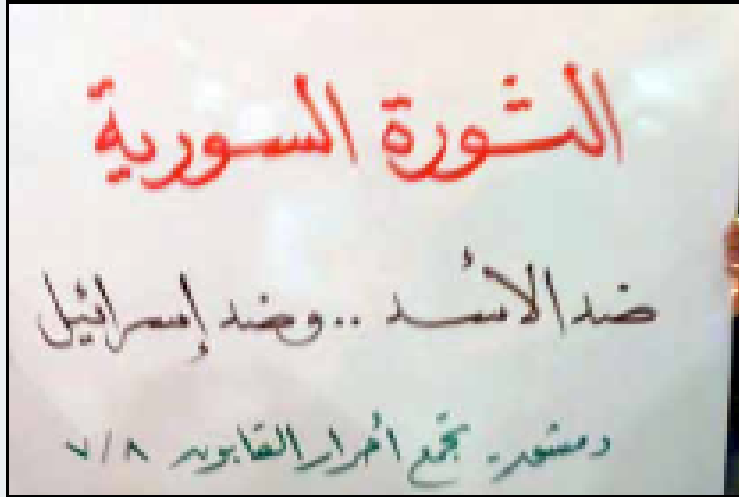 الثورة السورية
ضد الأسد .. وضد إسرائيل
دمشق - تجمع أحرار القابون ٧/٨